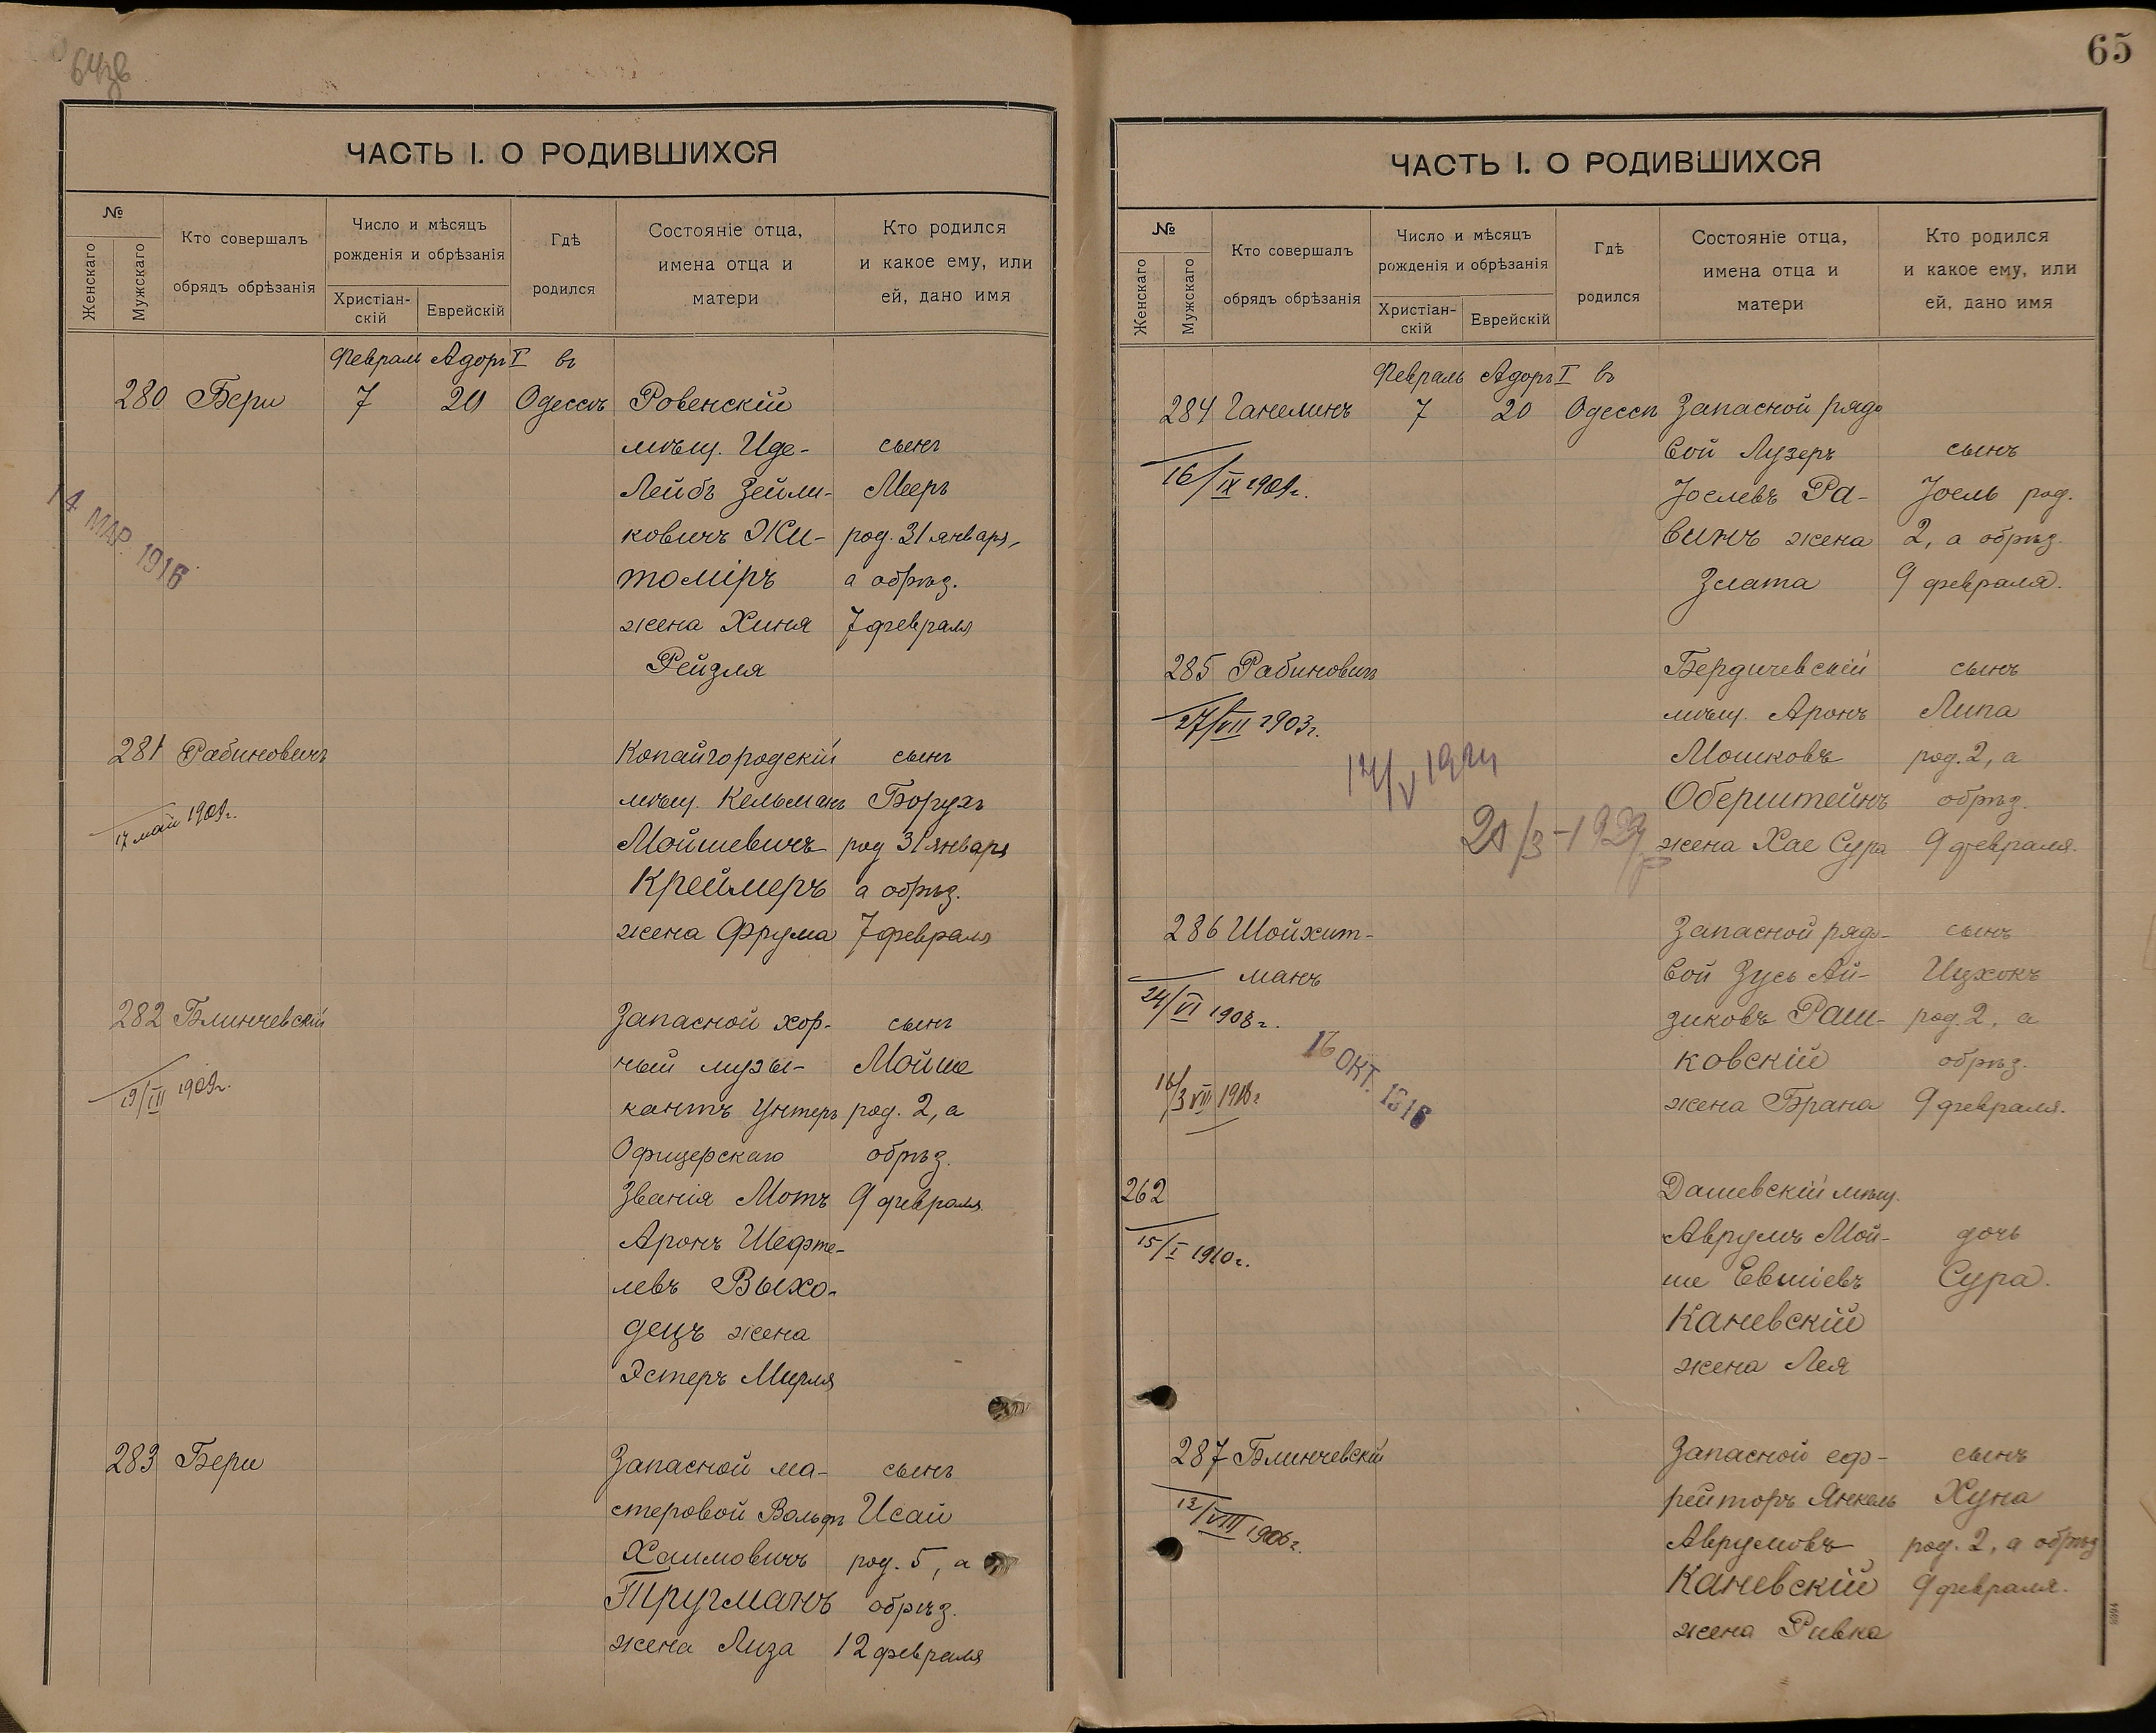 64зв
ЧАСТЬ I. О РОДИВШИХСЯ
№
Женскаго
Мужскаго
Кто совершалъ
обрядъ обрѣзанія
Число и мѣсяцъ
рожденія и обрѣзанія
Христіан-
скій
Еврейскій
Гдѣ
родился
Состояніе отца,
имена отца и
матери
Кто родился
и какое ему, или
ей, дано имя
Февраль Адоръ I въ
280 Бери 7 20 Одессѣ Ровенскій
мѣщ. Иде- сынъ
Лейбъ Зейли- Мееръ
ковичъ Жи- род. 31 января,
томіръ а обрѣз.
жена Хиня 7 февраля
Рейзля
14 МАР. 1916
281 Рабиновичъ Копайгородскій сынъ
мѣщ. Кельманъ Борухъ
17 май 1909г.
Мойшевичъ род 31 января
Креймеръ а обрѣз.
жена Фрума 7 февраля
282 Блинчевскій Запасной хор- сынъ
ный музы- Мойше
19/III 1909г.
кантъ Унтеръ род. 2, а
Офицерскаго обрѣз.
Званія Мотъ 9 февраля
Аронъ Шефте-
левъ Выхо-
децъ жена
Эстеръ Мирля
283 Бери Запасной ма- сынъ
стеровой Вольфъ Исай
Хаимовичъ род. 5, а
Тругманъ обрѣз.
жена Лиза 12 февраля
65
ЧАСТЬ I. О РОДИВШИХСЯ
№
Женскаго
Мужскаго
Кто совершалъ
обрядъ обрѣзанія
Число и мѣсяцъ
рожденія и обрѣзанія
Христіан-
скій
Еврейскій
Гдѣ
родился
Состояніе отца,
имена отца и
матери
Кто родился
и какое ему, или
ей, дано имя
Февраль Адоръ I въ
284 Ганелинъ 7 20 Одессѣ Запасной рядо
вой Лузеръ сынъ
16/IX 1909г.
Іослевъ Ра- Іоель род.
винъ жена 2, а обрѣз.
Злата 9 февраля.
285 Рабиновичъ Бердичевскій сынъ
27/VII 1903г.
мѣщ. Аронъ Липа
Мошковъ род. 2, а
Оберштейнъ обрѣз.
жена Хае Сура 9 февраля.
286 Шойхит- Запасной рядо- сынъ
манъ вой Зусь Ай- Ицхокъ
24/VI 1908г.
зиковъ Раш- род. 2, а
ковскій обрѣз.
16 ОКТ. 1916
жена Брана 9 февраля.
262 Дашевскій мѣщ.
15/I 1910г.
Аврумъ Мой- дочь
ше Евшіевъ Сура.
Каневскій
жена Лея
287 Блинчевскій Запасной еф- сынъ
12/VIII 1906г.
рейторъ Янкель Хуна
Аврумовъ род. 2, а обрѣз
Каневскій 9 февраля.
жена Ривка